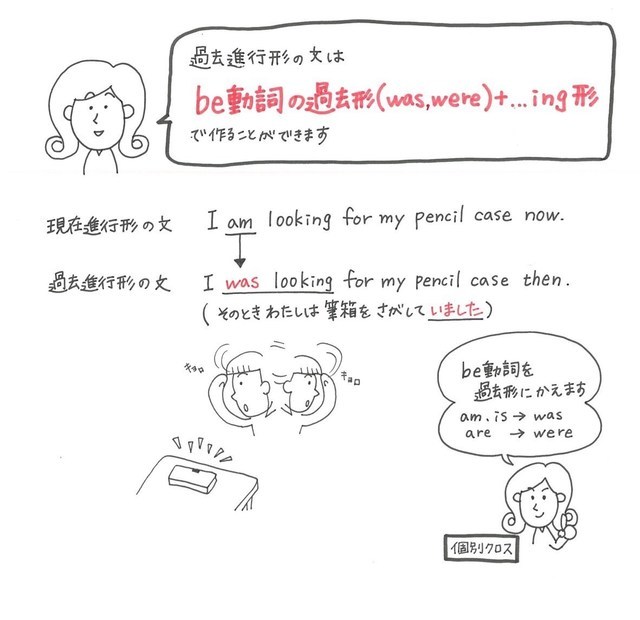 過去進行形の文は
be動詞の過去形(was,were)+...ing形
で作ることができます
現在進行形の文 I am looking for my pencil case now.
過去進行形の文 I was looking for my pencil case then.
(そのときわたしは筆箱をさがしていました)
キョロ
キョロ
be動詞を
過去形にかえます
am.is→was
are →were
個別クロス